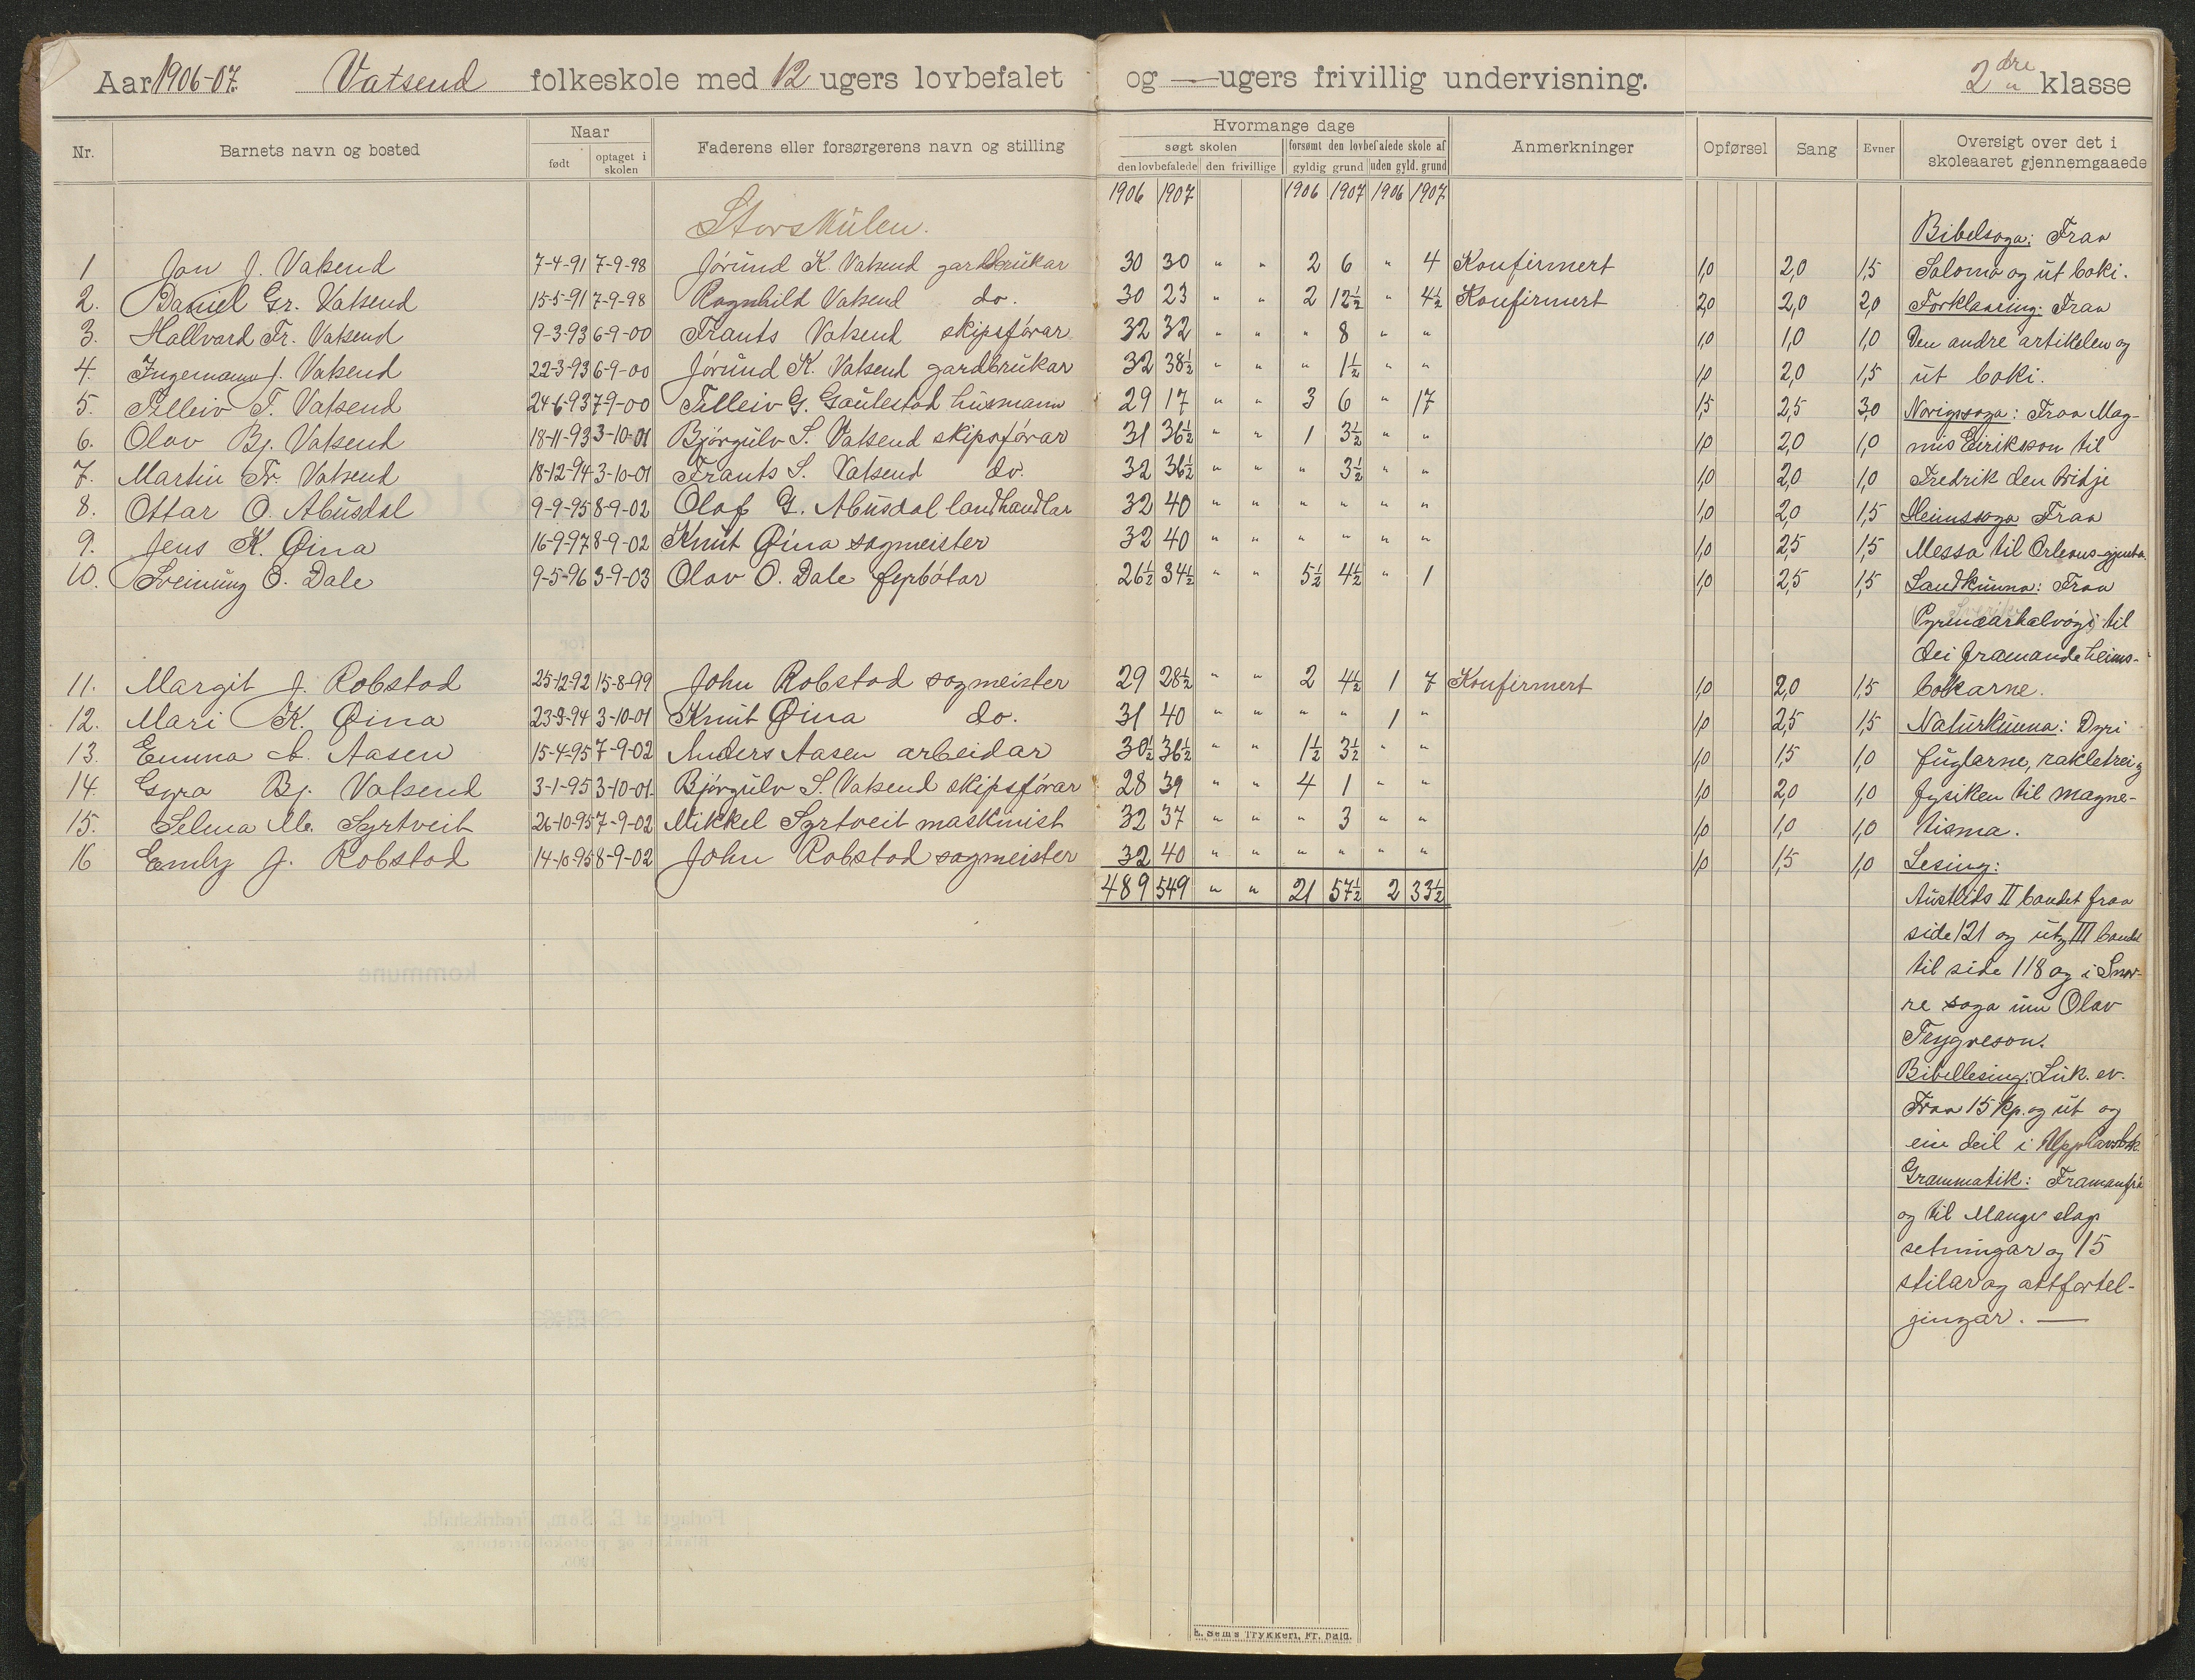 Aar 1906-07. Vatsend folkeskole med 12 ugers lovbefalet og — ugers frivillig undervisning. 2dre klasse
Nr. Barnets navn og bosted Naar født optaget i skolen Faderens eller forsørgerens navn og stilling Hvormange dage søgt skolen den lovbefalede den frivillige forsømt den lovbefalede skole af gyldig grund uden gyld. grund Anmerkninger Opførsel Sang Evner Oversigt over det i skoleaaret gjennemgaaede
1906 1907 1906 1907 1906 1907
Storskulen.
1 Jon J. Vatsend 7-4-91 7-9-98 Jørund K. Vatsend gardbrukar 30 30 " " 2 6 " 4 Konfirmert 1,0 2,0 1,5
2. Daniel Gr. Vatsend 15-5-91 7-9-98 Ragnhild Vatsend do. 30 23 " " 2 12½ " 4½ Konfirmert 2,0 2,0 2,0
3. Hallvard Fr. Vatsend 9-3-93 6-9-00 Frants Vatsend skipsførar 32 32 " " " 8 " " 1,0 1,0 1,0
4. Ingemann J. Vatsend 22-3-93 6-9-00 Jørund K. Vatsend gardbrukar 32 38½ " " " 1½ " " 1,0 2,0 1,5
5. Tilleiv T. Vatsend 24-6-93 7-9-00 Tilleiv G. Gaulestad husmann 29 17 " " 3 6 " 17 1,5 2,5 3,0
6. Olav Bj. Vatsend 18-11-93 3-10-01 Bjørgulv S. Vatsend skipsførar 31 36½ " " 1 3½ " " 1,0 2,0 1,0
7. Martin Fr. Vatsend 18-12-94 3-10-01 Frants S. Vatsend do. 32 36½ " " " 3½ " " 1,0 2,0 1,0
8. Ottar O. Abusdal 9-9-95 8-9-02 Olaf G. Abusdal landhandlar 32 40 " " " " " " 1,0 2,0 1,5
9. Jens K. Øina 16-9-97 8-9-02 Knut Øina sagmeister 32 40 " " " " " " 1,0 2,5 1,5
10. Sveinung O. Dale 9-5-96 3-9-03 Olav O. Dale fyrbøtar 26½ 34½ " " 5½ 4½ " 1 1,0 2,5 1,5
11. Margit J. Robstad 25-12-92 15-8-99 John Robstad sagmeister 29 28½ " " 2 4½ 1 7 Konfirmert 1,0 2,0 1,5
12. Mari K. Øina 23-9-94 3-10-01 Knut Øina do. 31 40 " " " " 1 " 1,0 2,5 1,5
13. Emma A. Aasen 15-4-95 7-9-02 Anders Aasen arbeidar 30½ 36½ " " 1½ 3½ " " 1,0 1,5 1,0
14. Gyra Bj. Vatsend 3-1-95 3-10-01 Bjørgulv S. Vatsend skipsførar 28 39 " " 4 1 " " 1,0 2,0 1,0
15. Selma M. Syrtveit 26-10-95 7-9-02 Mikkel Syrtveit maskinist 32 37 " " " 3 " " 1,0 1,0 1,0
16 Emly J. Robstad 14-10-95 8-9-02 John Robstad sagmeister 32 40 " " " " " " 1,0 1,5 1,0
489 549 " " 21 57½ 2 33½
Bibelsoga: Fraa
Saloma og ut boki.
Forklaaring: Fraa
Den andre artikelen og
ut boki.
Norigssoga: Fraa Mag-
nus Eirikson til
Fredrik den tridje
Heimssoga Fraa
Messa til Orleans-gjenta.
Landkunna: Fraa
Pyrenæarhalvøyi til
dei framande heims-
bolkarne.
Naturkunna: Dyri
fuglarne, rakletrei og
fysiken til magne-
tisma.
Lesing:
Austlids II bandet fraa
side 121 og ut, III bandet
til side 118 og i Snor-
re soga um Olav
Trygveson.
Bibellesing: Luk. ev.
Fraa 15 kp. og ut og
ein deil i Upphavsbok.
Grammatik: Framanfrå
og til Mange slags
setningar og 15
stilar og attfortel-
jingar. —
E. Sem's Trykkeri, Fr. hald.